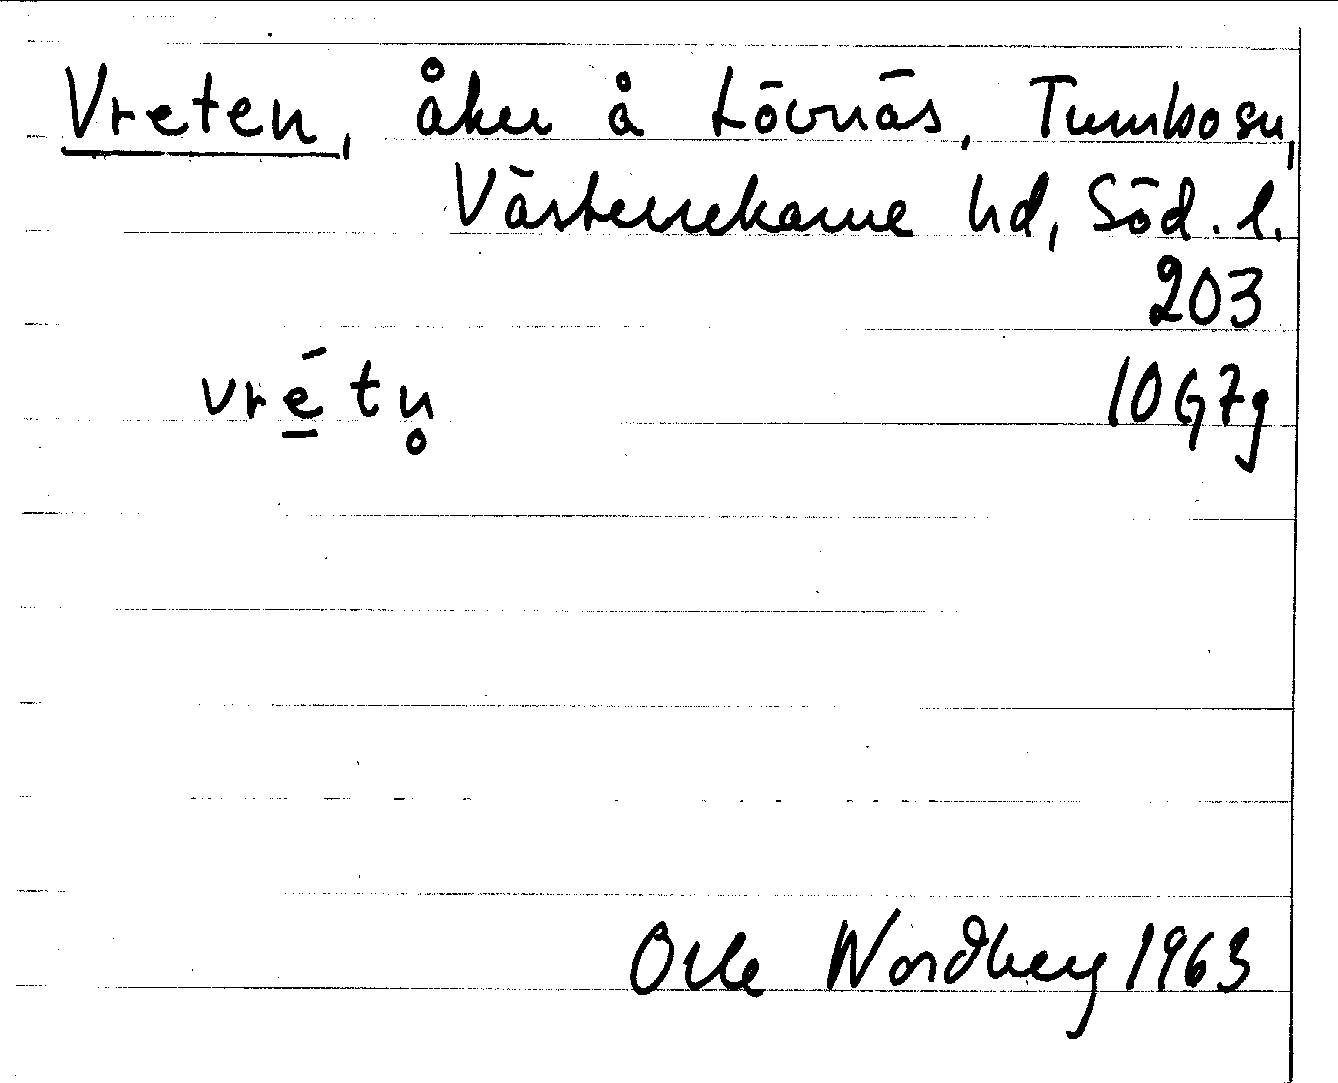 Vreten, åker å Lövnäs, Tumbo sn,
Västerrekarne hd, Söd. l.
203
vré̱tn̥ 10G7g
Olle Nordberg 1963